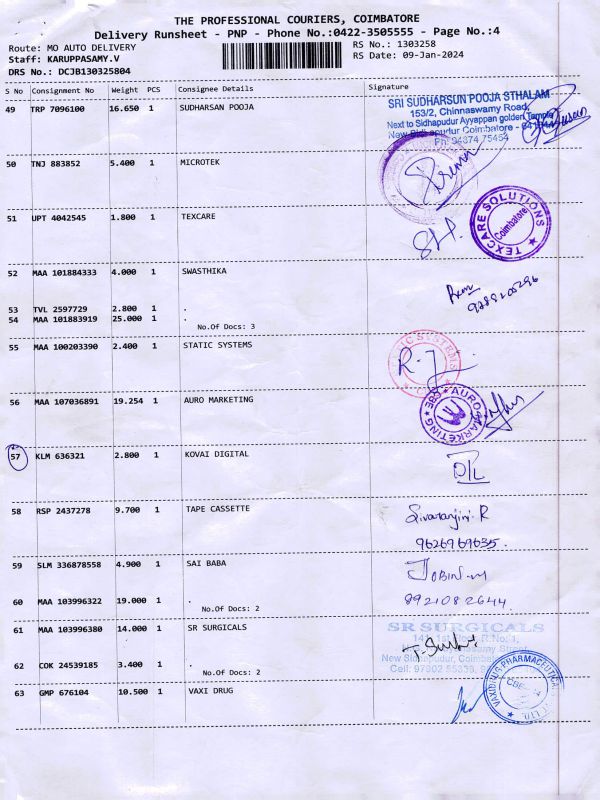 THE PROFESSIONAL COURIERS, COIMBATORE
Delivery Runsheet - PNP - Phone No.:0422-3505555 - Page No.:4
Route: MO AUTO DELIVERY RS No.: 1303258
Staff: KARUPPASAMY.V RS Date: 09-Jan-2024
DRS No.: DCJB130325804
S No Consignment No Weight PCS Consignee Details Signature
49 TRP 7096100 16.650 1 SUDHARSAN POOJA
SRI SUDHARSUN POOJA STHALAM
153/2, Chinnaswamy Road,
Next to Sidhapudur Ayyappan golden Temple
New Sidhapudur Coimbatore -
Ph: 94374 75454
50 TNJ 883852 5.400 1 MICROTEK
51 UPT 4042545 1.800 1 TEXCARE
TEXCARE SOLUTIONS
Coimbatore
52 MAA 101884333 4.000 1 SWASTHIKA
53 TVL 2597729 2.800 1 .
54 MAA 101883919 25.000 1 .
No.Of Docs: 3
55 MAA 100203390 2.400 1 STATIC SYSTEMS
R.J
56 MAA 107036891 19.254 1 AURO MARKETING
AURO MARKETING CBE
57 KLM 636321 2.800 1 KOVAI DIGITAL
58 RSP 2437278 9.700 1 TAPE CASSETTE
Sivaranjini.R
9626969635.
59 SLM 336878558 4.900 1 SAI BABA
JOBIN.M
60 MAA 103996322 19.000 1 .
8921082644.
No.Of Docs: 2
61 MAA 103996380 14.000 1 SR SURGICALS
SR SURGICALS
New Sidhapudur, Coimbatore
Cell: 97902
62 COK 24539185 3.400 1 .
No.Of Docs: 2
63 GMP 676104 10.500 1 VAXI DRUG